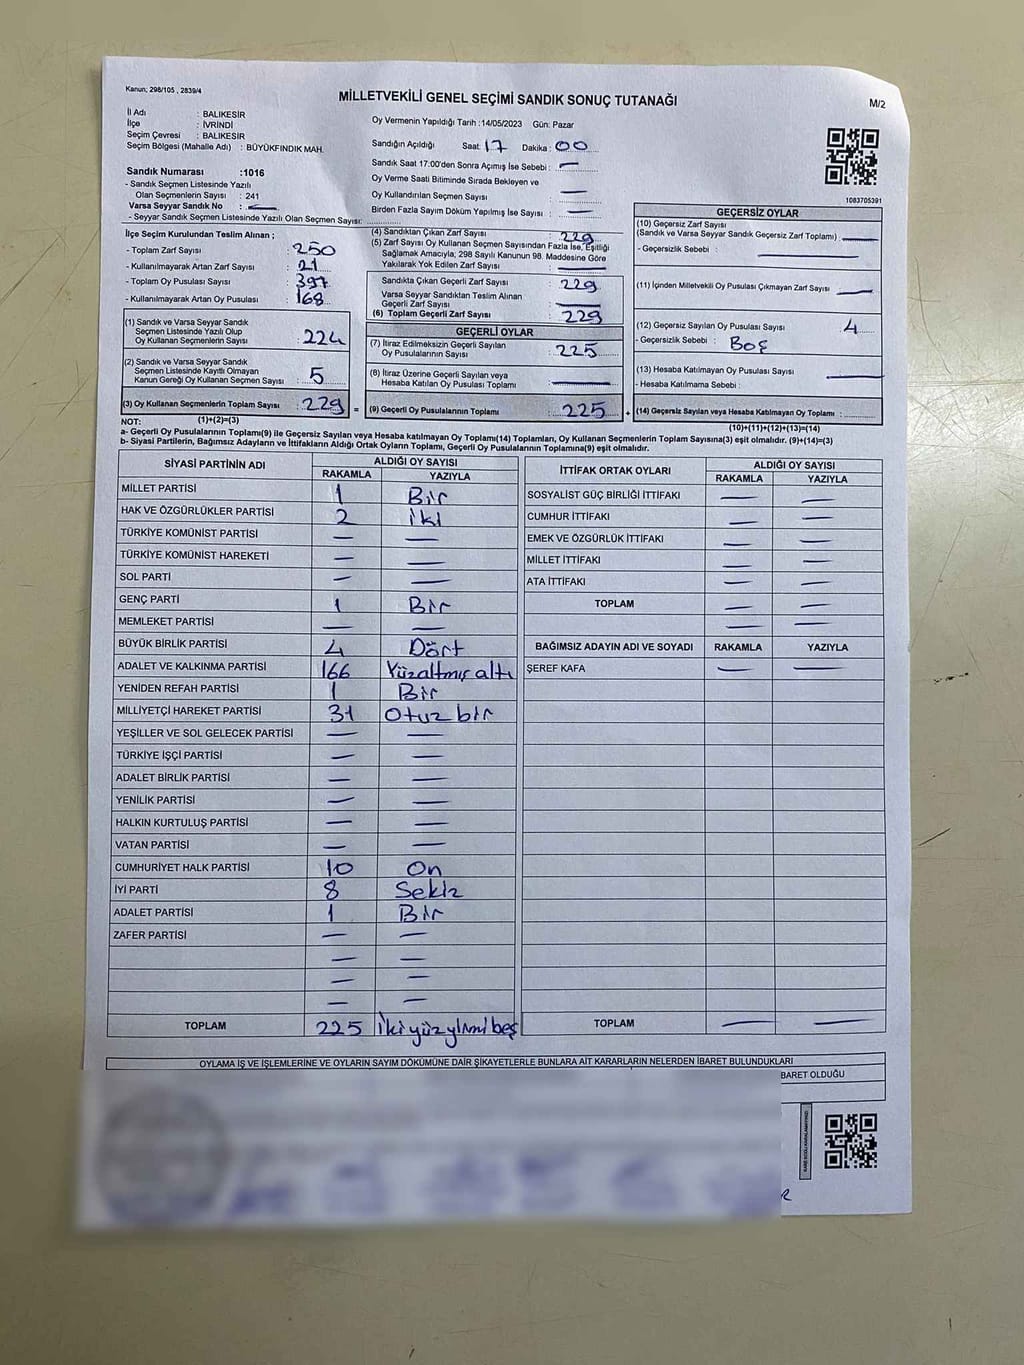 Kanun; 298/105 , 2839/4
MİLLETVEKİLİ GENEL SEÇİMİ SANDIK SONUÇ TUTANAĞI
M/2
İl Adı : BALIKESİR
İlçe : İVRİNDİ
Seçim Çevresi : BALIKESİR
Seçim Bölgesi (Mahalle Adı) : BÜYÜKFINDIK MAH.
Sandık Numarası :1016
- Sandık Seçmen Listesinde Yazılı
Olan Seçmenlerin Sayısı : 241
Varsa Seyyar Sandık No : —
- Seyyar Sandık Seçmen Listesinde Yazılı Olan Seçmen Sayısı:
Oy Vermenin Yapıldığı Tarih :14/05/2023 Gün: Pazar
Sandığın Açıldığı Saat: 17 Dakika : 00
Sandık Saat 17:00'den Sonra Açımış İse Sebebi : —
Oy Verme Saati Bitiminde Sırada Bekleyen ve
Oy Kullandırılan Seçmen Sayısı : —
Birden Fazla Sayım Döküm Yapılmış İse Sayısı : —
1083705391
İlçe Seçim Kurulundan Teslim Alınan ;
- Toplam Zarf Sayısı : 250
- Kullanılmayarak Artan Zarf Sayısı : 21
- Toplam Oy Pusulası Sayısı : 397
- Kullanılmayarak Artan Oy Pusulası : 168
(1) Sandık ve Varsa Seyyar Sandık
Seçmen Listesinde Yazılı Olup
Oy Kullanan Seçmenlerin Sayısı : 224
(2) Sandık ve Varsa Seyyar Sandık
Seçmen Listesinde Kayıtlı Olmayan
Kanun Gereği Oy Kullanan Seçmen Sayısı : 5
(3) Oy Kullanan Seçmenlerin Toplam Sayısı : 229
(1)+(2)=(3)
(4) Sandıktan Çıkan Zarf Sayısı : 229
(5) Zarf Sayısı Oy Kullanan Seçmen Sayısından Fazla İse, Eşitliği
Sağlamak Amacıyla; 298 Sayılı Kanunun 98. Maddesine Göre
Yakılarak Yok Edilen Zarf Sayısı : —
Sandıkta Çıkan Geçerli Zarf Sayısı : 229
Varsa Seyyar Sandıktan Teslim Alınan
Geçerli Zarf Sayısı : —
(6) Toplam Geçerli Zarf Sayısı : 229
GEÇERLİ OYLAR
(7) İtiraz Edilmeksizin Geçerli Sayılan
Oy Pusulalarının Sayısı : 225
(8) İtiraz Üzerine Geçerli Sayılan veya
Hesaba Katılan Oy Pusulası Toplamı : —
= (9) Geçerli Oy Pusulalarının Toplamı : 225 +
GEÇERSİZ OYLAR
(10) Geçersiz Zarf Sayısı
(Sandık ve Varsa Seyyar Sandık Geçersiz Zarf Toplamı) : —
- Geçersizlik Sebebi : —
(11) İçinden Milletvekili Oy Pusulası Çıkmayan Zarf Sayısı : —
(12) Geçersiz Sayılan Oy Pusulası Sayısı : 4
- Geçersizlik Sebebi : Boş
(13) Hesaba Katılmayan Oy Pusulası Sayısı : —
- Hesaba Katılmama Sebebi :
(14) Geçersiz Sayılan veya Hesaba Katılmayan Oy Toplamı :
(10)+(11)+(12)+(13)=(14)
NOT:
a- Geçerli Oy Pusulalarının Toplamı(9) ile Geçersiz Sayılan veya Hesaba katılmayan Oy Toplamı(14) Toplamları, Oy Kullanan Seçmenlerin Toplam Sayısına(3) eşit olmalıdır. (9)+(14)=(3)
b- Siyasi Partilerin, Bağımsız Adayların ve İttifakların Aldığı Ortak Oyların Toplamı, Geçerli Oy Pusulalarının Toplamına(9) eşit olmalıdır.
SİYASİ PARTİNİN ADI ALDIĞI OY SAYISI
RAKAMLA YAZIYLA
MİLLET PARTİSİ 1 Bir
HAK VE ÖZGÜRLÜKLER PARTİSİ 2 iki
TÜRKİYE KOMÜNİST PARTİSİ — —
TÜRKİYE KOMÜNİST HAREKETİ — —
SOL PARTİ — —
GENÇ PARTİ 1 Bir
MEMLEKET PARTİSİ — —
BÜYÜK BİRLİK PARTİSİ 4 Dört
ADALET VE KALKINMA PARTİSİ 166 Yüzaltmış altı
YENİDEN REFAH PARTİSİ 1 Bir
MİLLİYETÇİ HAREKET PARTİSİ 31 Otuz bir
YEŞİLLER VE SOL GELECEK PARTİSİ — —
TÜRKİYE İŞÇİ PARTİSİ — —
ADALET BİRLİK PARTİSİ — —
YENİLİK PARTİSİ — —
HALKIN KURTULUŞ PARTİSİ — —
VATAN PARTİSİ — —
CUMHURİYET HALK PARTİSİ 10 On
İYİ PARTİ 8 Sekiz
ADALET PARTİSİ 1 Bir
ZAFER PARTİSİ — —
— —
— —
— —
TOPLAM 225 İkiyüzyirmibeş
İTTİFAK ORTAK OYLARI ALDIĞI OY SAYISI
RAKAMLA YAZIYLA
SOSYALİST GÜÇ BİRLİĞİ İTTİFAKI — —
CUMHUR İTTİFAKI — —
EMEK VE ÖZGÜRLÜK İTTİFAKI — —
MİLLET İTTİFAKI — —
ATA İTTİFAKI — —
TOPLAM — —
— —
BAĞIMSIZ ADAYIN ADI VE SOYADI RAKAMLA YAZIYLA
ŞEREF KAFA — —
TOPLAM — —
OYLAMA İŞ VE İŞLEMLERİNE VE OYLARIN SAYIM DÖKÜMÜNE DAİR ŞİKAYETLERLE BUNLARA AİT KARARLARIN NELERDEN İBARET BULUNDUKLARI
BARET OLDUĞU